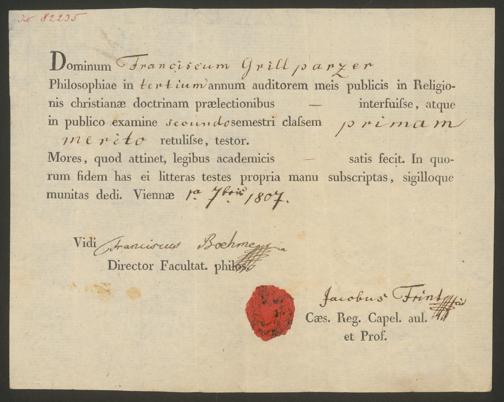 82235
Dominum Franciscum Grillparzer
Philosophiae in tertium annum auditorem meis publicis in Religio-
nis christianæ doctrinam prælectionibus — interfuiſse, atque
in publico examine secundo semestri claſsem primam
merito retuliſse, testor.
Mores, quod attinet, legibus academicis — satis fecit. In quo-
rum fidem has ei litteras testes propria manu subscriptas, sigilloque
munitas dedi. Viennæ 1a 7bris 1807.
Vidi Franciscus Boehme
Director Facultat. philos.
Jacobus Frint
Cæs. Reg. Capel. aul.
et Prof.